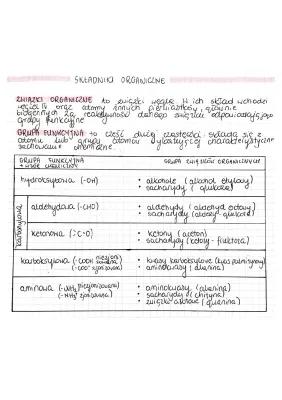 SKŁADNIKI ORGANICZNE
ZWIĄZKI ORGANICZNE to związki węgla. W ich skład wchodzi
węgiel oraz atomy innych pierwiastków, głównie
biogennych. Za reaktywność danego związku odpowiadają jego
grupy funkcyjne
GRUPA FUNKCYJNA to część dużej cząsteczki składa się z
atomu lub grupy atomów wykazującej charakterystyczne
zachowanie chemiczne.
GRUPA FUNKCYJNA GRUPA ZWIĄZKÓW ORGANICZNYCH
+ wzór chemiczny
hydroksylowa (-OH) • alkohole (alkohol etylowy)
• sacharydy (glukoza)
karbonylowa
aldehydowa (-CHO) • aldehydy (aldehyd octowy)
• sacharydy (aldozy-glukoza)
ketonowa (>C=O) • ketony (aceton)
• sacharydy (ketozy-fruktoza)
karboksylowa (-COOH niezjonizowana) • kwasy karboksylowe (kwas palmitynowy)
(-COO⁻ zjonizowana) • aminokwasy (alanina)
aminowa (-NH₂ niezjonizowana) • aminokwasy (alanina)
(-NH₃⁺ zjonizowana) • sacharydy (chityna)
• związki azotowe (guanina)